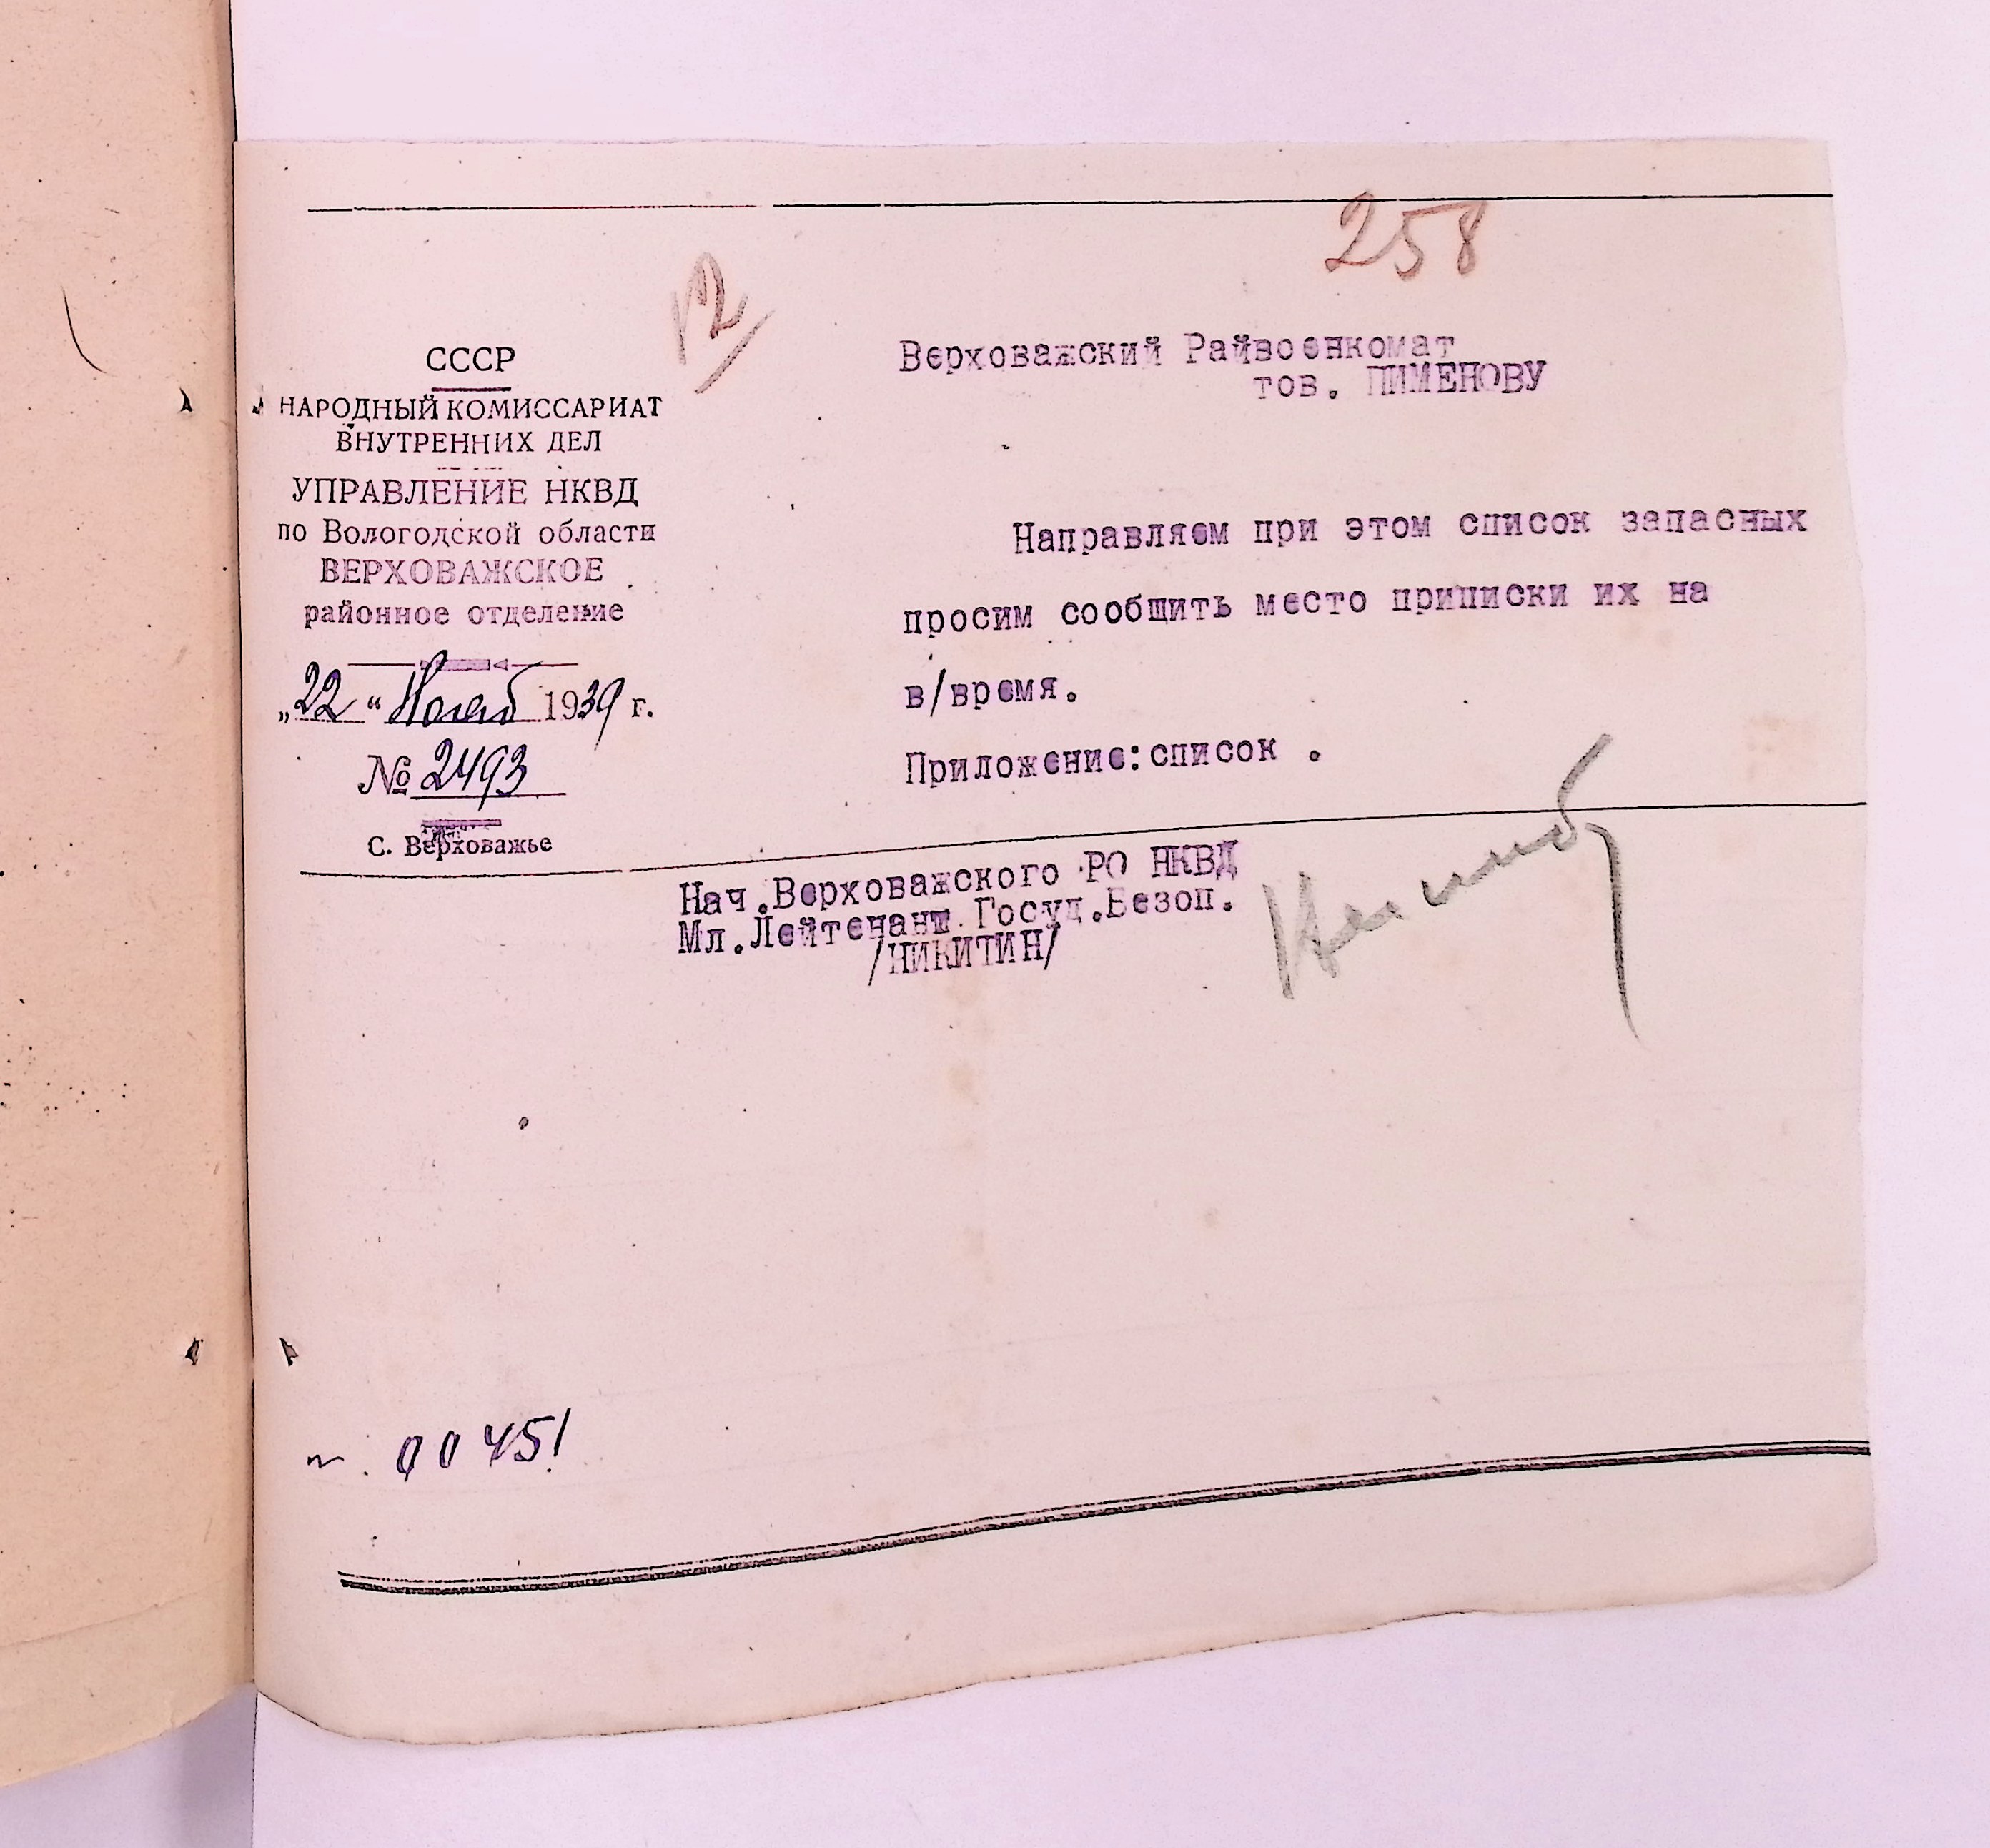 258
12
СССР
НАРОДНЫЙ КОМИССАРИАТ
ВНУТРЕННИХ ДЕЛ
УПРАВЛЕНИЕ НКВД
по Вологодской области
ВЕРХОВАЖСКОЕ
районное отделение
„22“ Нояб 1939 г.
№ 2493
С. Верховажье
Верховажский Райвоенкомат
тов. ПИМЕНОВУ
Направляем при этом список запасных
просим сообщить место приписки их на
в/время.
Приложение:список .
Нач.Верховажского РО НКВД
Мл.Лейтенант Госуд.Безоп.
/НИКИТИН/
00451